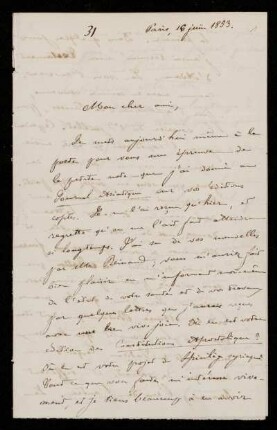 31
Paris, 16 juin 1853.
Mon cher ami,
Je mets aujourd'hui même à la
poste pour vous une épreuve de
la petite note que j'ai donné au
Journal Asiatique sur vos éditions
coptes. Je ne l'ai reçue qu'hier, et
regrette qu'on me l'ait fait attendre
si longtemps. J'ai su de vos nouvelles
par Renand; vous m'auriez fait
bien plaisir en m'informant
de l'état de votre santé et de vos travaux
par quelques lettres que j'aurais reçues
avec une bien vive joie. Où en est votre
édition des Constitutions Apostoliques?
Où en est votre projet de syriaque
Tout ce que vous faites m'intéresse vive-
ment, et je tiens beaucoup à en devoir